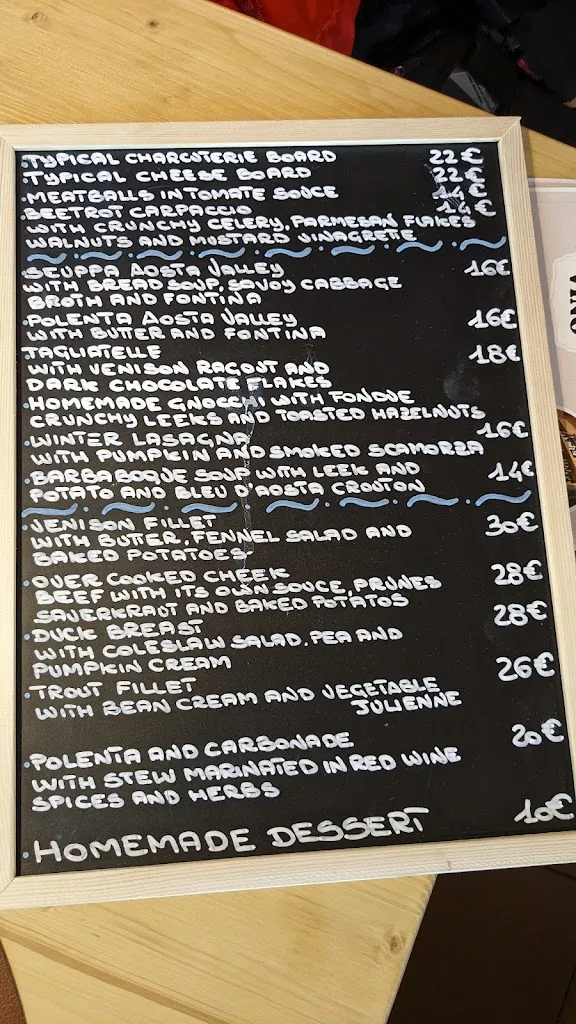 ·TYPICAL CHARCUTERIE BOARD 22€
·TYPICAL CHEESE BOARD 22€
·MEATBALLS IN TOMATE SOUCE 14€
·BEETROT CARPACCIO 14€
WITH CRUNCHY CELERY, PARMESAN FLAKES
WALNUTS AND MUSTARD VINAGRETE
·SEUPPA AOSTA VALLEY 16€
WITH BREAD SOUP, SAVOY CABBAGE
BROTH AND FONTINA
·POLENTA AOSTA VALLEY 16€
WITH BUTTER AND FONTINA
·TAGLIATELLE 18€
WITH VENISON RAGOUT AND
DARK CHOCOLATE FLAKES
·HOMEMADE GNOCCHI WITH FONDUE
CRUNCHY LEEKS AND TOASTED HAZELNUTS
·WINTER LASAGNA 16€
WITH PUMPKIN AND SMOKED SCAMORZA
·BARBABOQUE SOUP WITH LEEK AND 14€
POTATO AND BLEU D'AOSTA CROUTON
·VENISON FILLET 30€
WITH BUTER, FENNEL SALAD AND
BAKED POTATOES
·OVER COOKED CHEEK 28€
BEEF WITH ITS OWN SOUCE, PRUNES
SAUERKRAUT AND BAKED POTATOS
·DUCK BREAST 28€
WITH COLESLAW SALAD, PEA AND
PUMPKIN CREAM
·TROUT FILLET 26€
WITH BEAN CREAM AND VEGETABLE
JULIENNE
·POLENTA AND CARBONADE 20€
WITH STEW MARINATED IN RED WINE
SPICES AND HERBS
·HOMEMADE DESSERT 10€